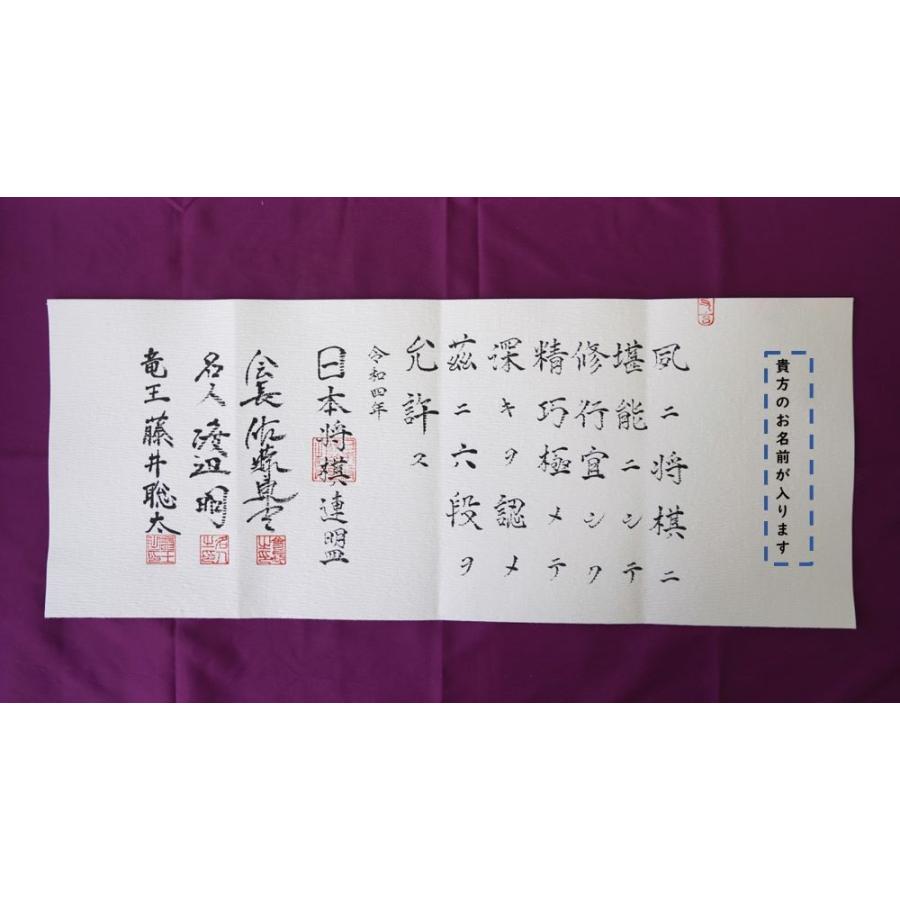 貴方のお名前が入ります
夙ニ将棋ニ
堪能ニシテ
修行宜シク
精巧極メテ
深キヲ認メ
茲ニ六段ヲ
允許ス
令和四年
日本将棋連盟
会長 佐藤康光
名人 渡辺明
竜王 藤井聡太